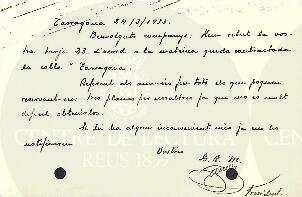 Tarragona 24/3/1933.
Benvolguts companys: Hem rebut la vos-
tra tarja 23. d'acord a la mateixa queda contractada
la cobla "Tarragona".
Referent als anuncis feu tots els que pogueu
reservant-nos tres planes per nosaltres ja que no es molt
dificil obtenir-los.
Si hi ha algun inconvenient més ja us ho
notificarem
Vostres
President.
CENTRE DE LECTURA
REUS 1859